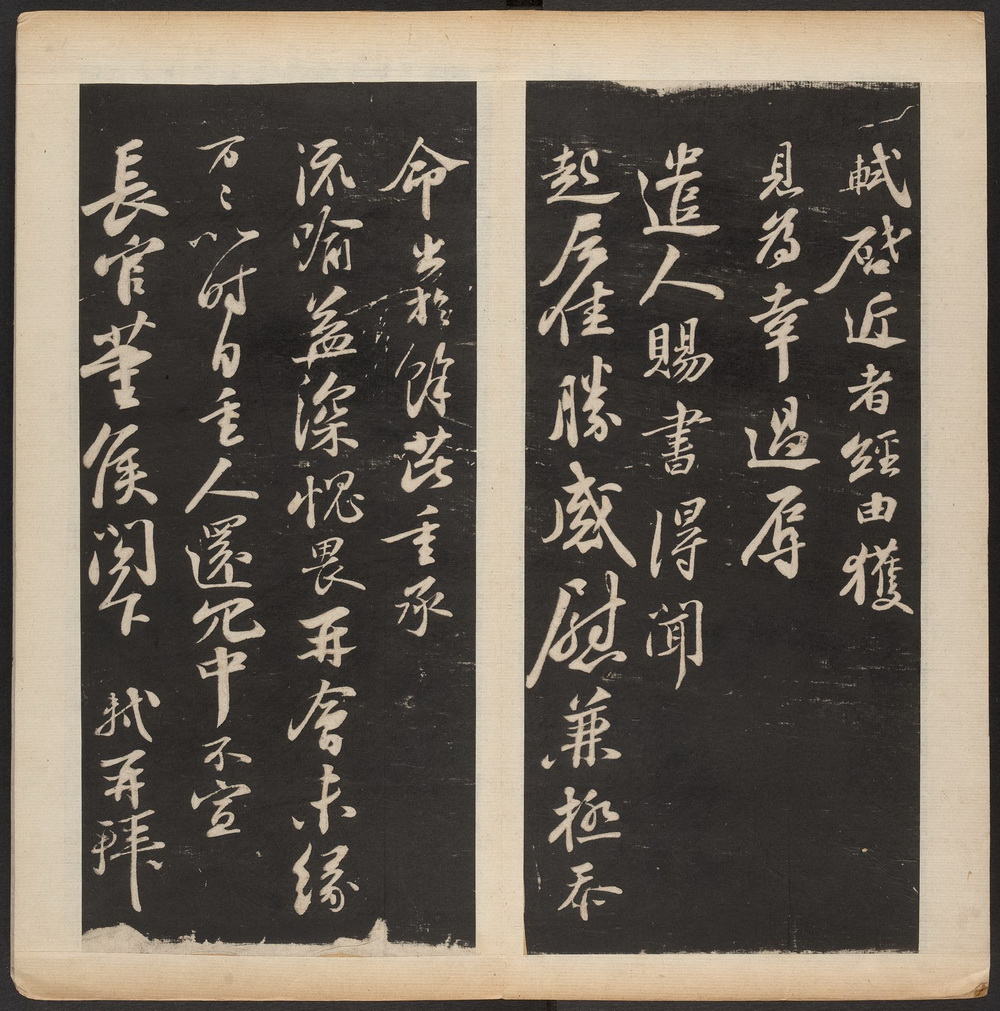 軾啓近者經由獲
見為幸過辱
遣人賜書得聞
起居佳勝感慰兼極忝
命出於餘芘重承
流喻益深愧畏再會未緣
万〻以时自重人還冗中不宣
長官董侯閣下 軾再拜